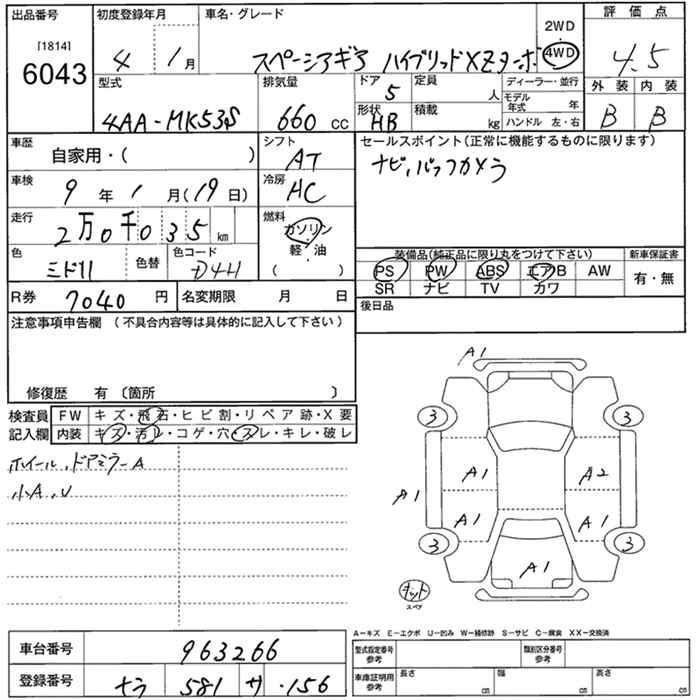 出品番号 初度登録年月 車名・グレード 評価点
[1814]
6043
4 1月 スペーシアギア ハイブリッドXZターボ 2WD・4WD 4.5
型式 排気量 ドア 5 定員 人 ディーラー・並行 外装 内装
モデル年式 年
4AA-MK53S 660 cc 形状 HB 積載 kg ハンドル 左・右 B B
車歴 自家用・( ) シフト AT セールスポイント(正常に機能するものに限ります)
ナビ、バックカメラ
車検 9年1月(19日) 冷房 AC
走行 2万0千035km 燃料 ガソリン・軽・油 ( )
色 ミドリ 色替 色コード D4H
装備品(純正品に限り丸をつけて下さい) 新車保証書
PS PW ABS エアB AW 有・無
SR ナビ TV カワ
R券 7040円 名変期限 月 日 後日品
注意事項申告欄 (不具合内容等は具体的に記入して下さい)
修復歴 有 〔箇所 〕
検査員記入欄 FW キズ・飛石・ヒビ割・リペア跡・X要
内装 キズ・汚レ・コゲ・穴・スレ・キレ・破レ
ホイール、ドアミラーA
小A、U
A1
3 3
A1 A2
A1
A1 A1
3 3
A1
キット
スペア
A-キズ E-エクボ U-凹み W-補修跡 S-サビ C-腐食 XX-交換済
車台番号 963266 型式指定番号 参考 類別区分番号 参考
登録番号 ナラ 581 サ ・156 車庫証明用 参考 長さ cm 幅 cm 高さ cm